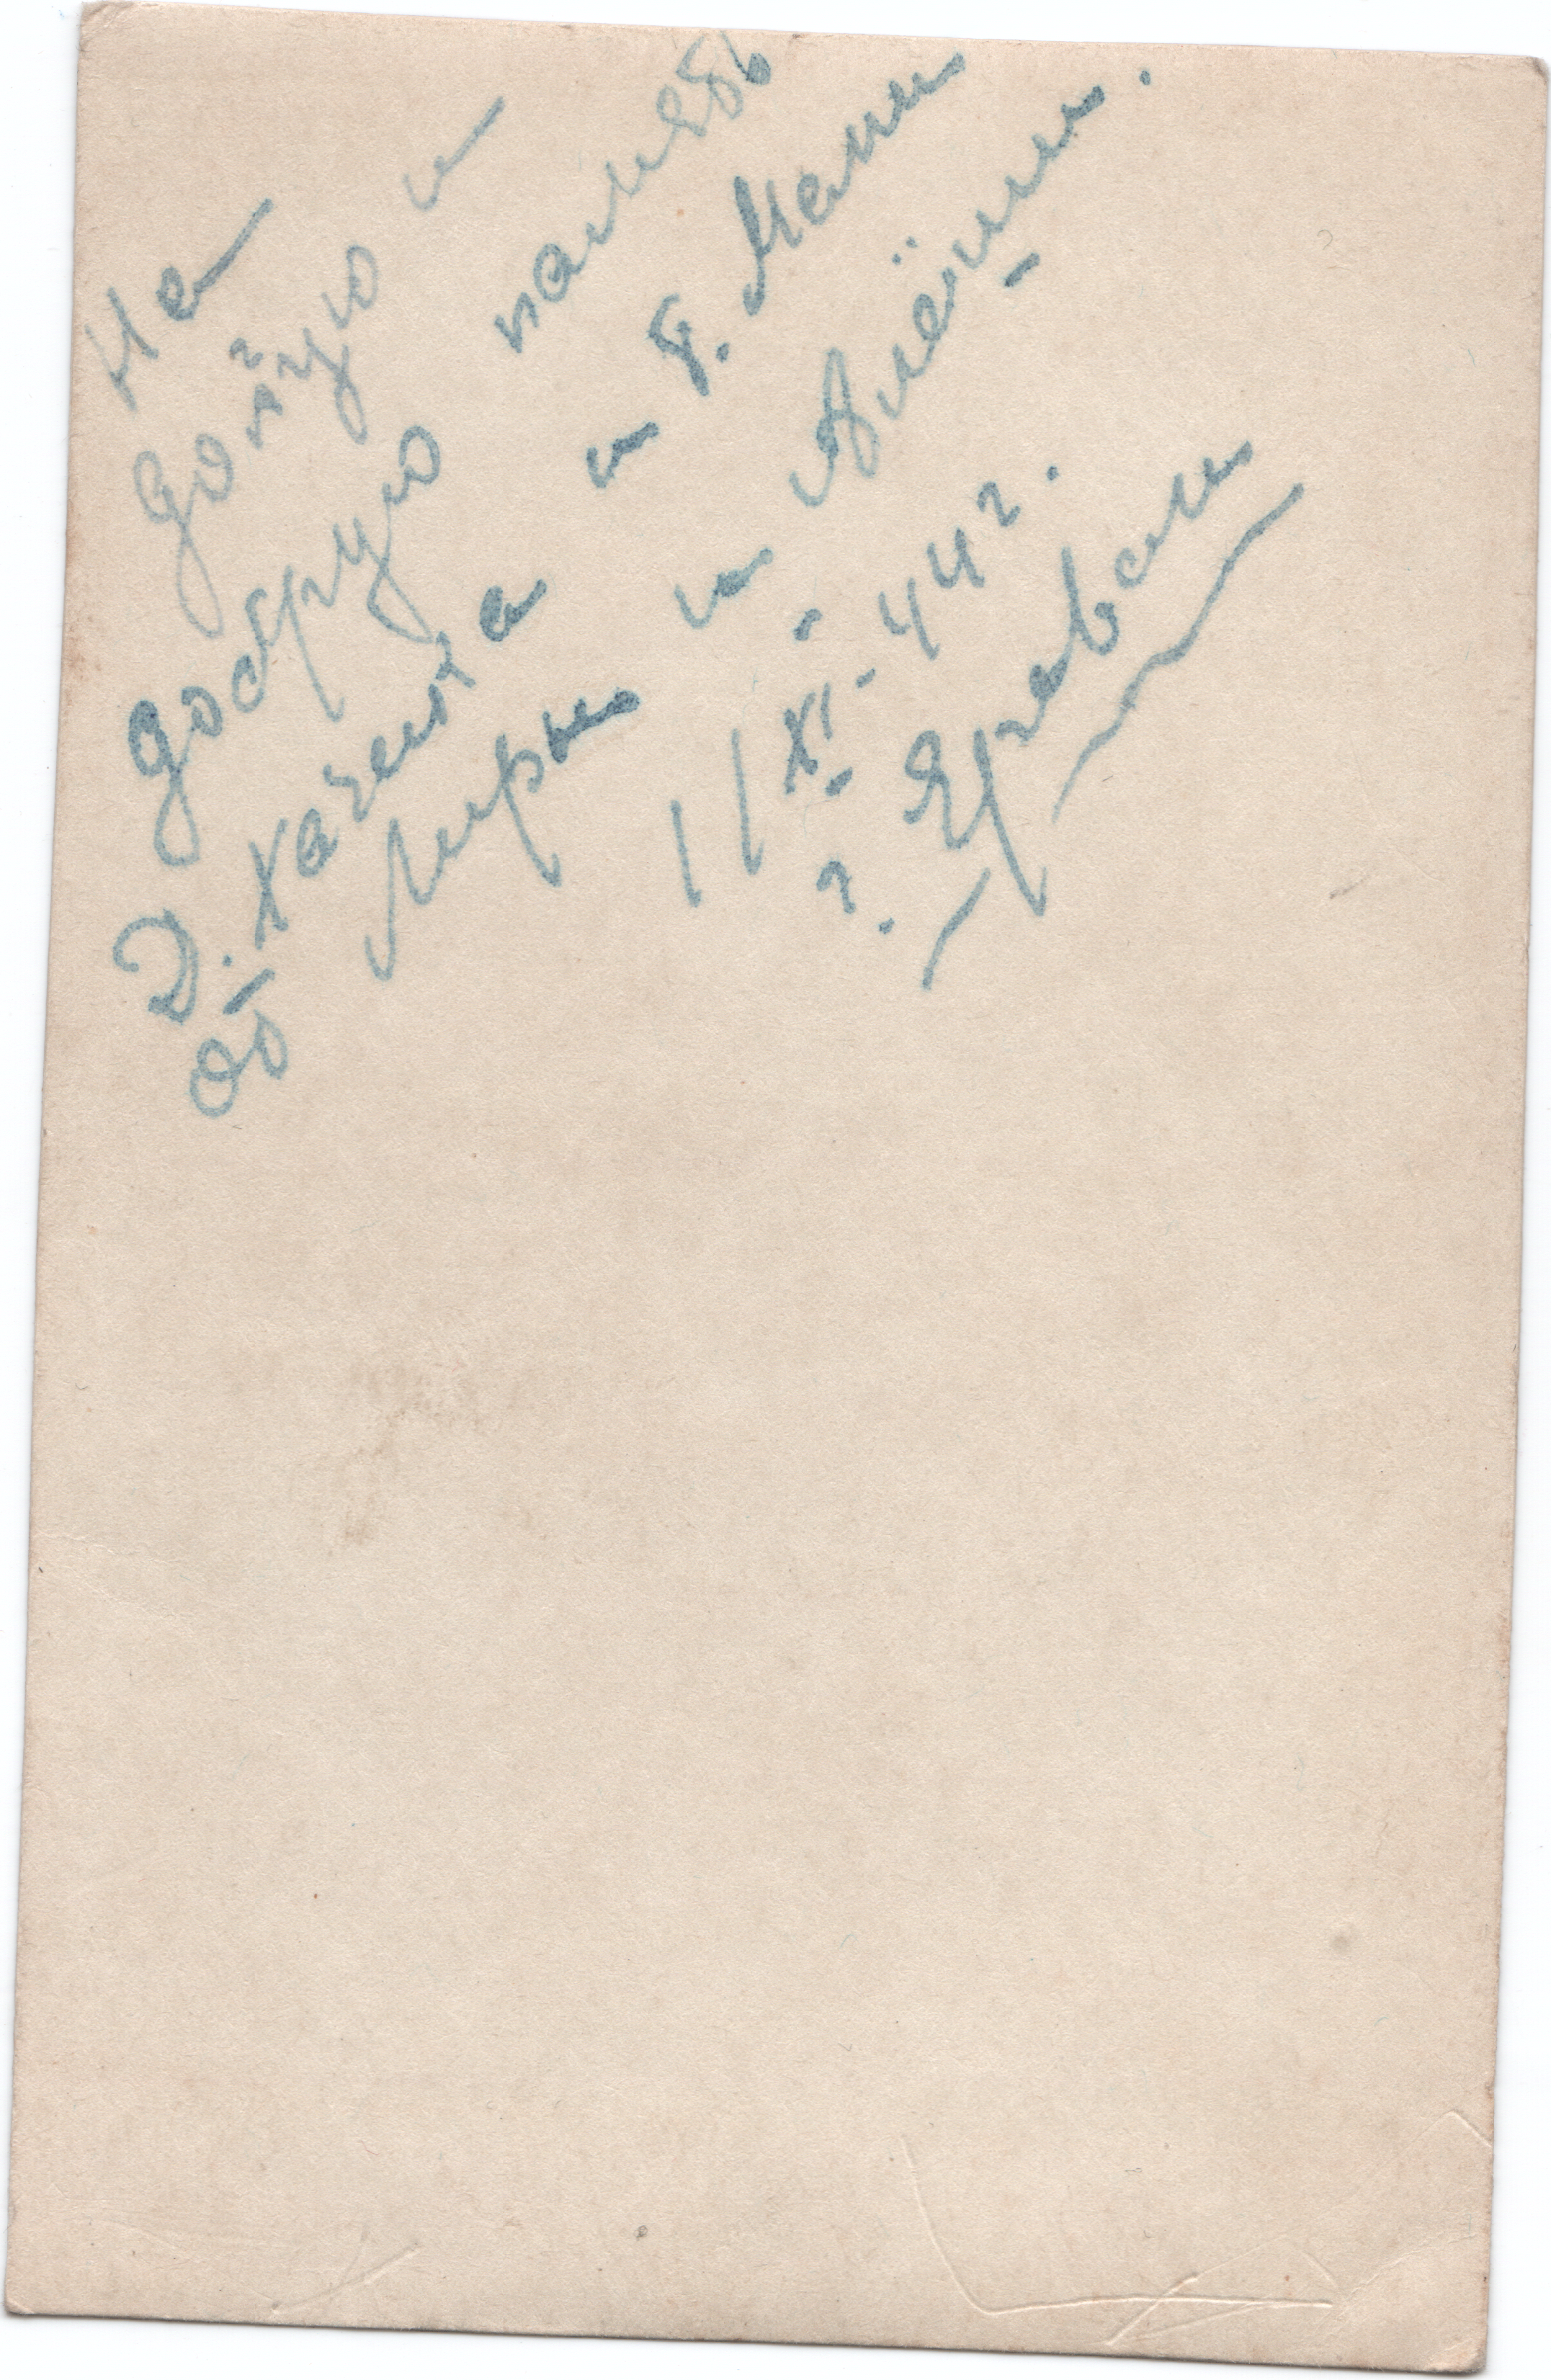 На
долгую и
добрую память
Д. Хачика и т. Мани
от Миры и Алёши.
11 XI - 44 г.
г. Ереван